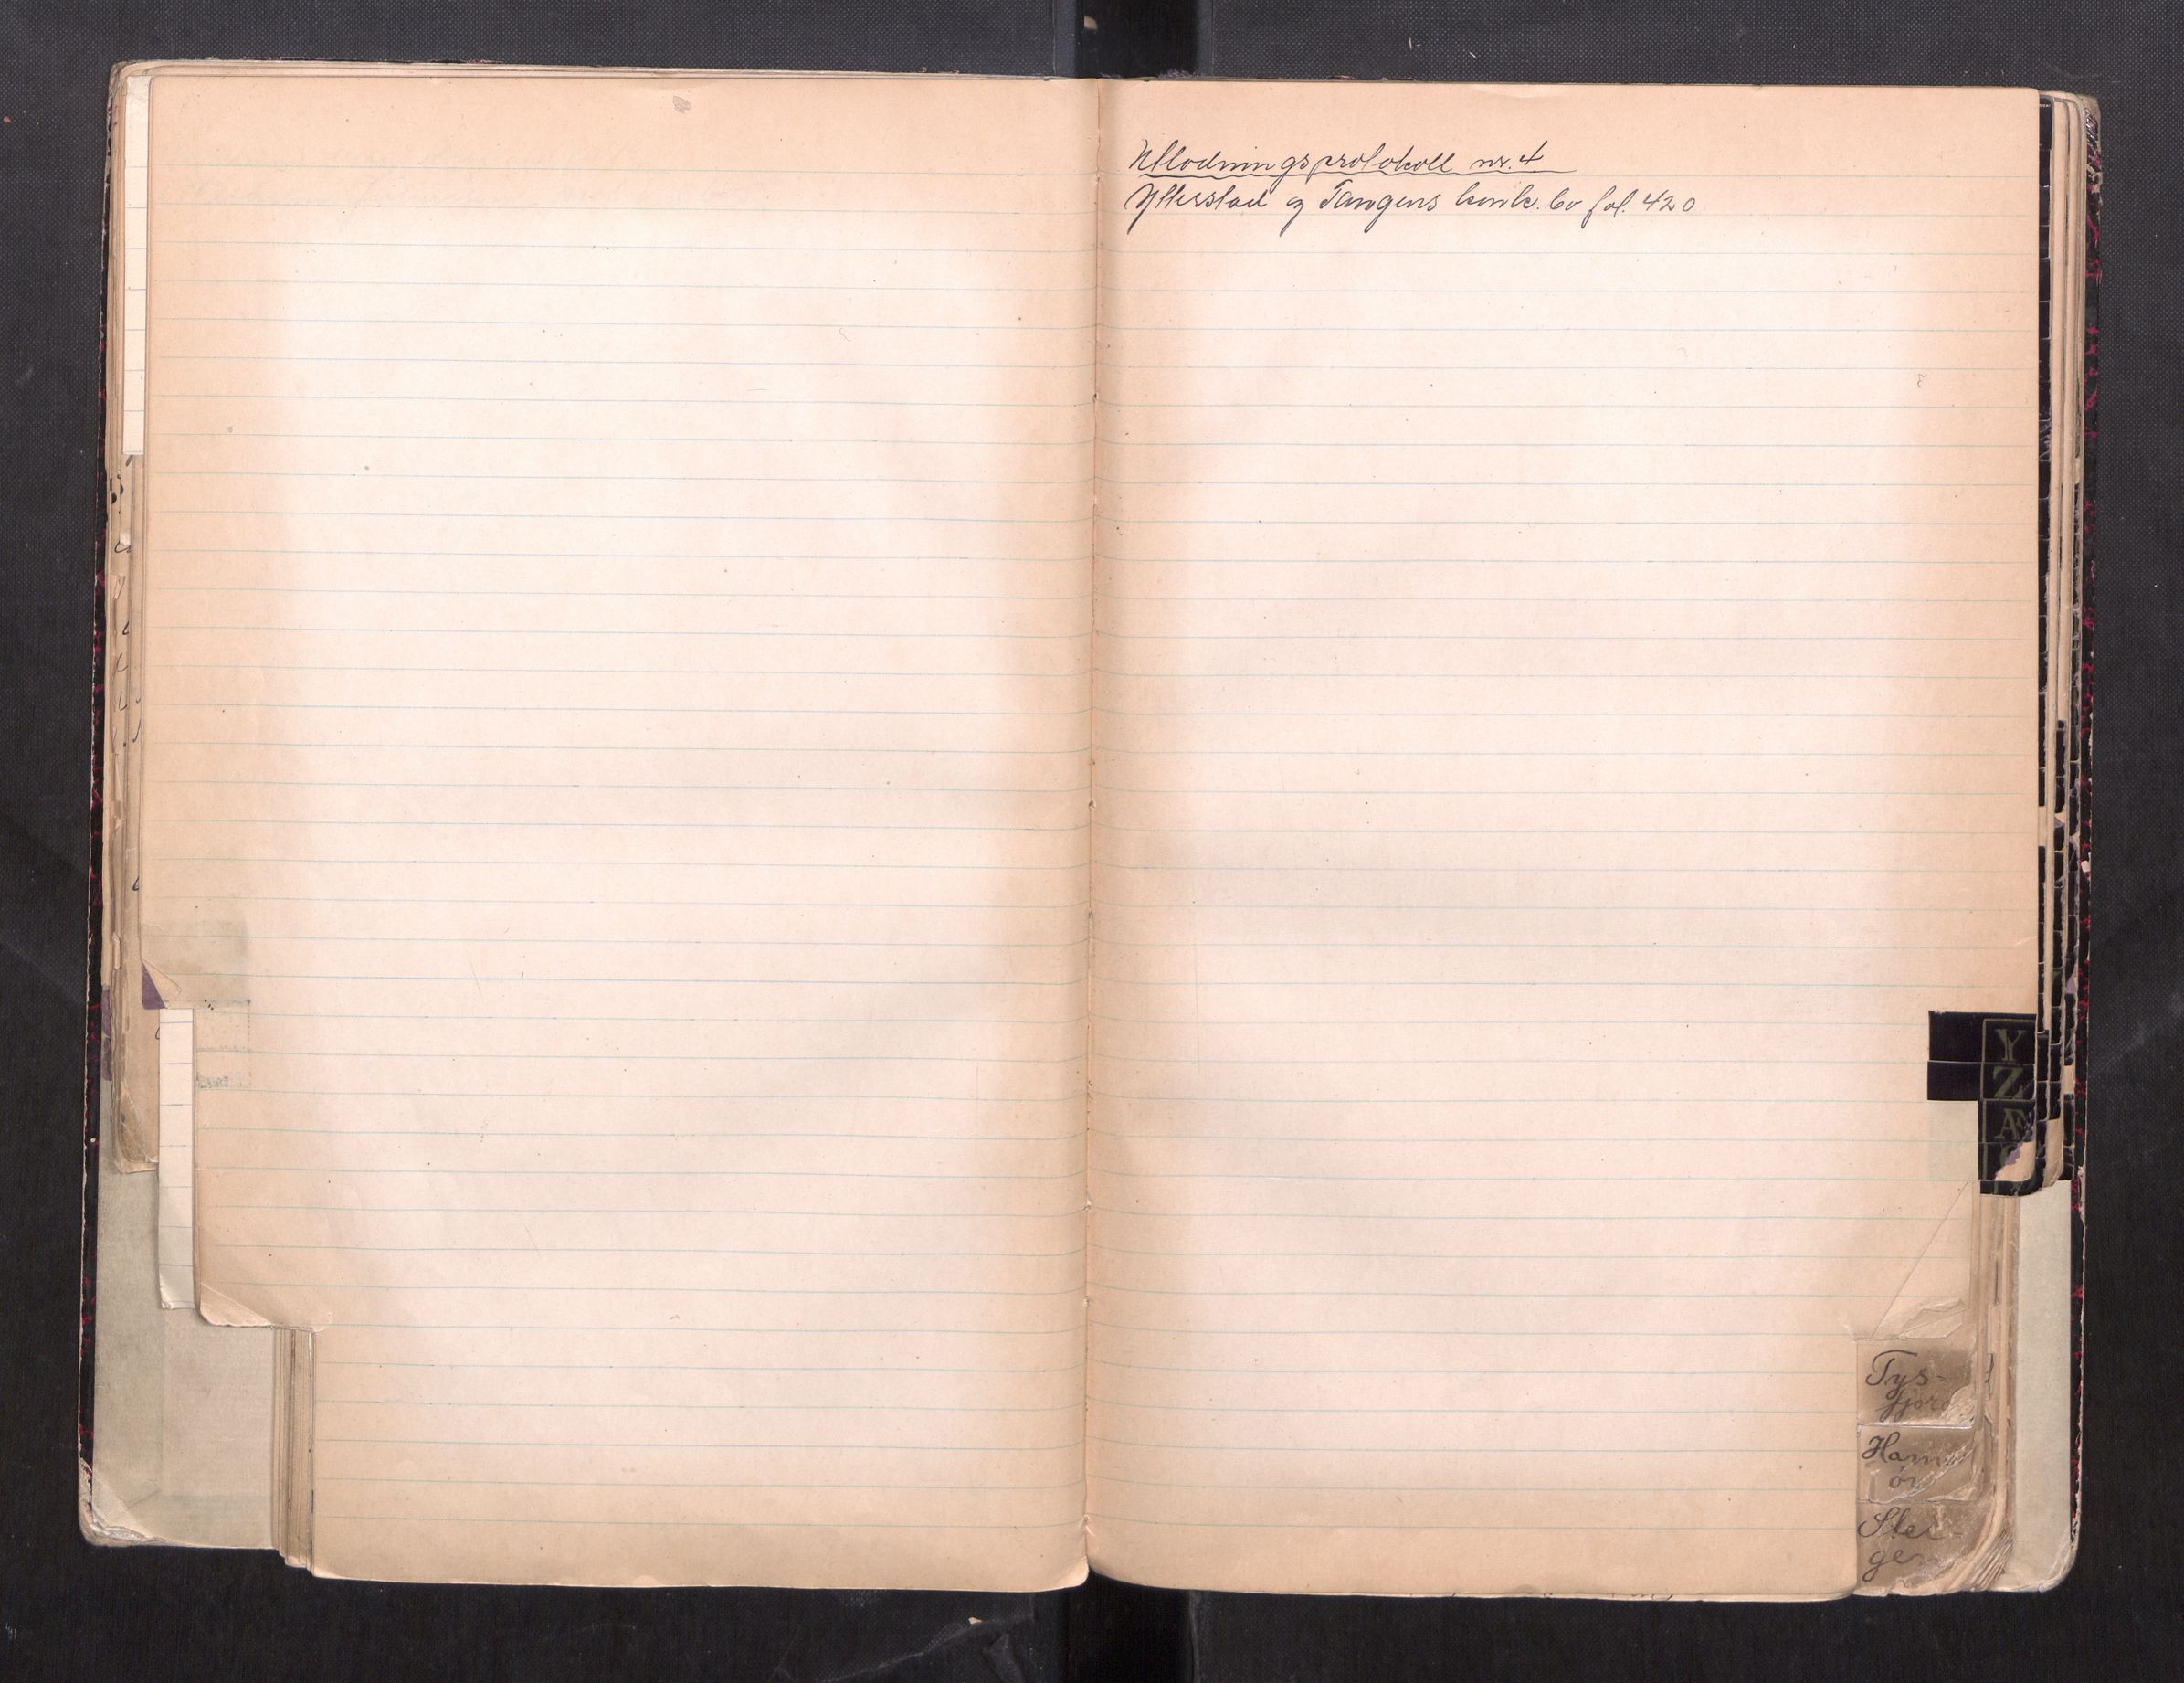 Utlodningsprotokoll nr. 4
Ytterstad og Tangens konk. bo fol. 420
Y
Z
Æ
Tys-
fjord
Ham
ør